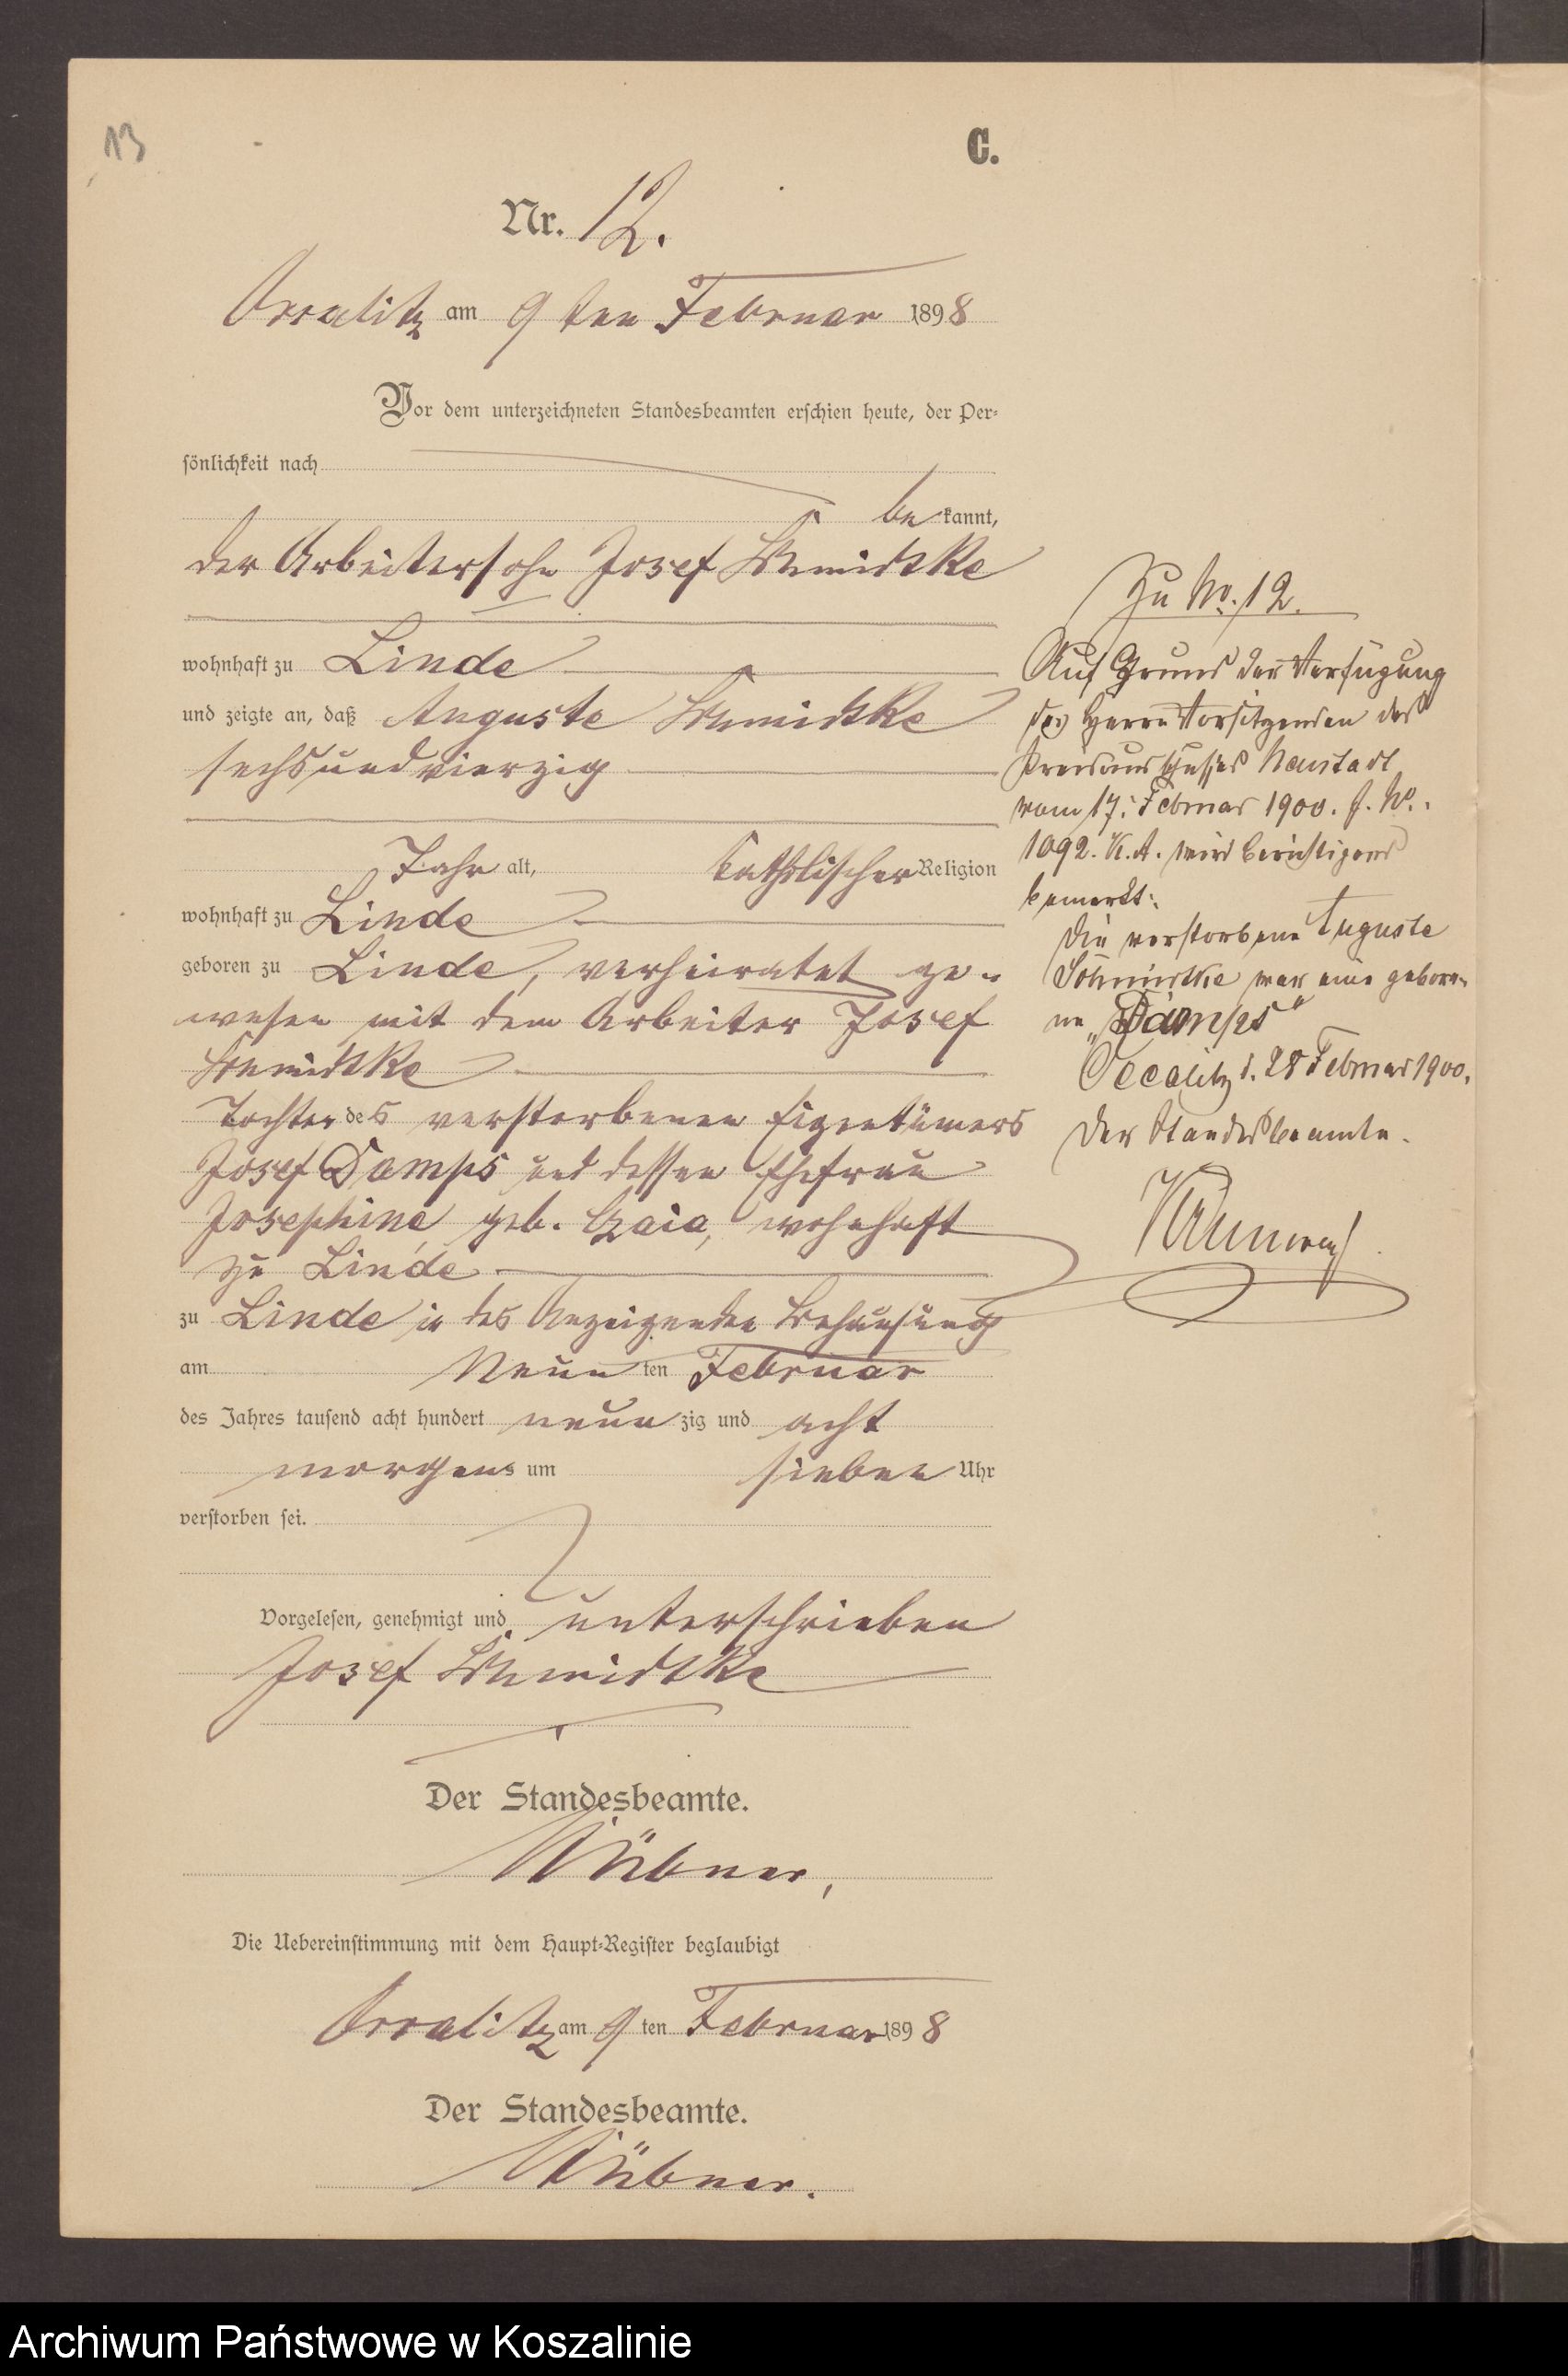 13
C.
Nr. 12.
Occalitz am 9ten Februar 1898
Vor dem unterzeichneten Standesbeamten erschien heute, der Per-
sönlichkeit nach
bekannt,
der Arbeitersohn Josef Schmidtke
wohnhaft zu Linde
und zeigte an, daß Auguste Schmidtke
sechsundvierzig
Jahr alt, katholischer Religion
wohnhaft zu Linde
geboren zu Linde, verheiratet ge-
wesen mit dem Arbeiter Josef
Schmidtke
Tochter des verstorbenen Eigentümers
Josef Damps und dessen Ehefrau
Josephine, geb. Czaia, wohnhaft
zu Linde
zu Linde in des Anzeigenden Behausung
am Neunten Februar
des Jahres tausend acht hundert neunzig und acht
morgens um sieben Uhr
verstorben sei.
Vorgelesen, genehmigt und unterschrieben
Josef Schmidtke
Der Standesbeamte.
Hübner,
Die Uebereinstimmung mit dem Haupt-Register beglaubigt
Occalitz am 9ten Februar 1898
Der Standesbeamte.
Hübner.
Zu No. 12.
Auf Grund der Verfügung
des Herrn Vorsitzenden des
Kreisausschusses Neustadt
vom 17. Februar 1900. J. No.
1092. K.A. wird berichtigend
bemerkt:
Die verstorbene Auguste
Schmidtke war eine gebore-
ne „Damps"
Occalitz d. 28 Februar 1900.
Der Standesbeamte.
Archiwum Państwowe w Koszalinie